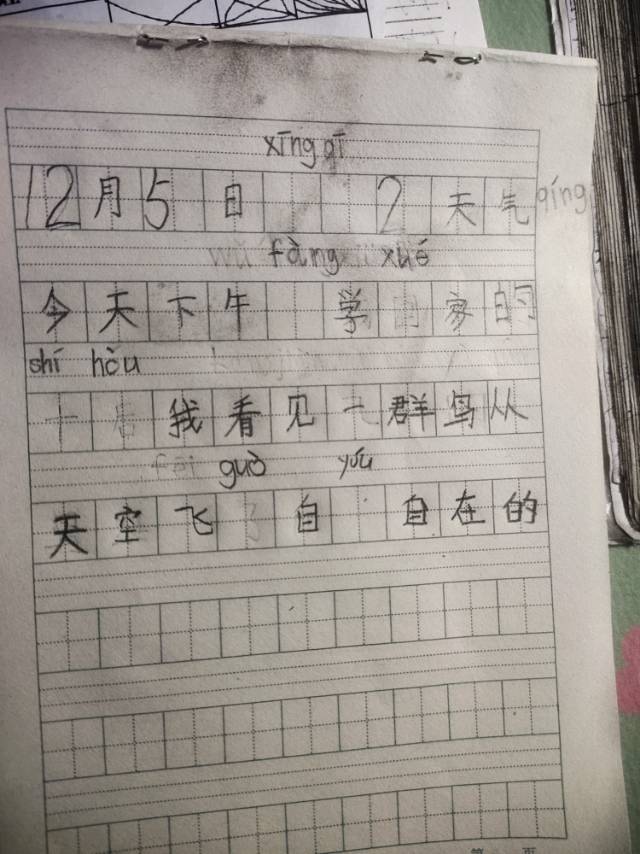 xīng qī
12月5日 2 天气 qíng
fàng xué
今天下午 学 家的
shí hòu
我看见一群鸟从
fēi guò yóu
天空飞 自 自在的